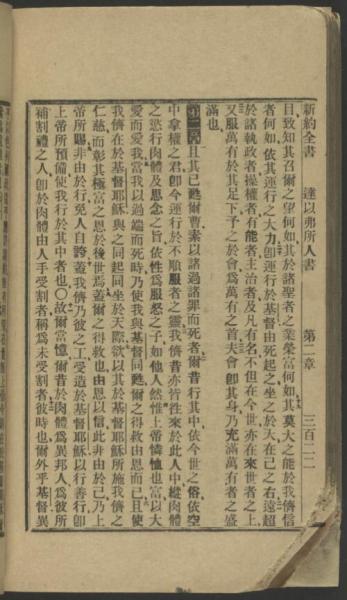 新約全書　達以弗所人書　第二章　三百二二
目致知其召爾之望何如其於諸聖者之業榮富何如其莫大之能於我儕信
者何如依其運行之大力卽運行於基督由死起之坐之於天在己之右遠超
於諸執政者操權者有能者主治者及凡有名不但在今世亦在來世者之上
又服萬有於其足下予之於會爲萬有之首夫會卽其身乃充滿萬有者之盛
滿也
第二章且其已甦爾曹素以諸過諸罪而死者爾昔行其中依今世之俗依空
中拿權之君卽今運行於不順服者之靈我儕昔亦皆徃來於此人中縱肉體
之慾行肉體及思念之旨依性爲服怒之子如他人然惟上帝憐恤也富以大
愛而愛我當我以過端而死時乃使我與基督同甦爾之得救由恩而已且使
我儕在於基督耶穌與之同起同坐於天際欲以其於基督耶穌所施我儕之
仁慈而彰其極富之恩於後世焉蓋爾之得救也由恩以信此非由於己乃上
帝所賜非由於行免人自誇蓋我儕乃彼之工受造於基督耶穌以行善行卽
上帝所預備使我行於其中者也〇故爾當憶爾昔於肉體爲異邦人爲彼所
補割禮之人卽於肉體由人手受割者稱爲未受割者彼時也爾外乎基督異